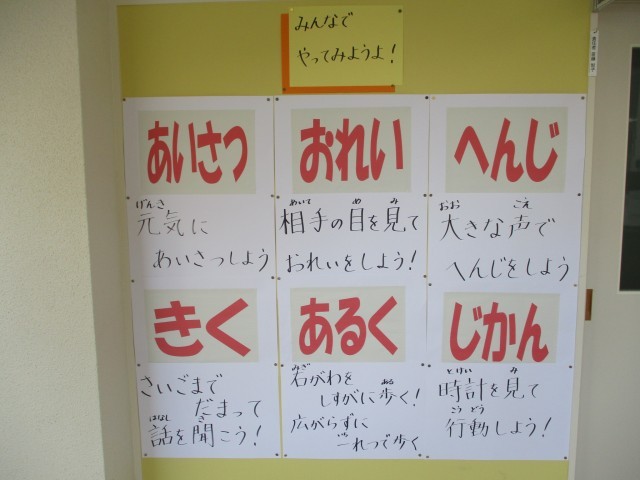 みんなで
やってみようよ！
あいさつ
げんき
元気に
あいさつしよう
おれい
あいて め み
相手の目を見て
おれいをしよう！
へんじ
おお こえ
大きな声で
へんじをしよう
きく
さいごまで
だまって
はなし き
話を聞こう！
あるく
みぎ
右がわを
ある
しずかに歩く！
広がらずに
一れつで歩く
じかん
とけい み
時計を見て
こうどう
行動しよう！